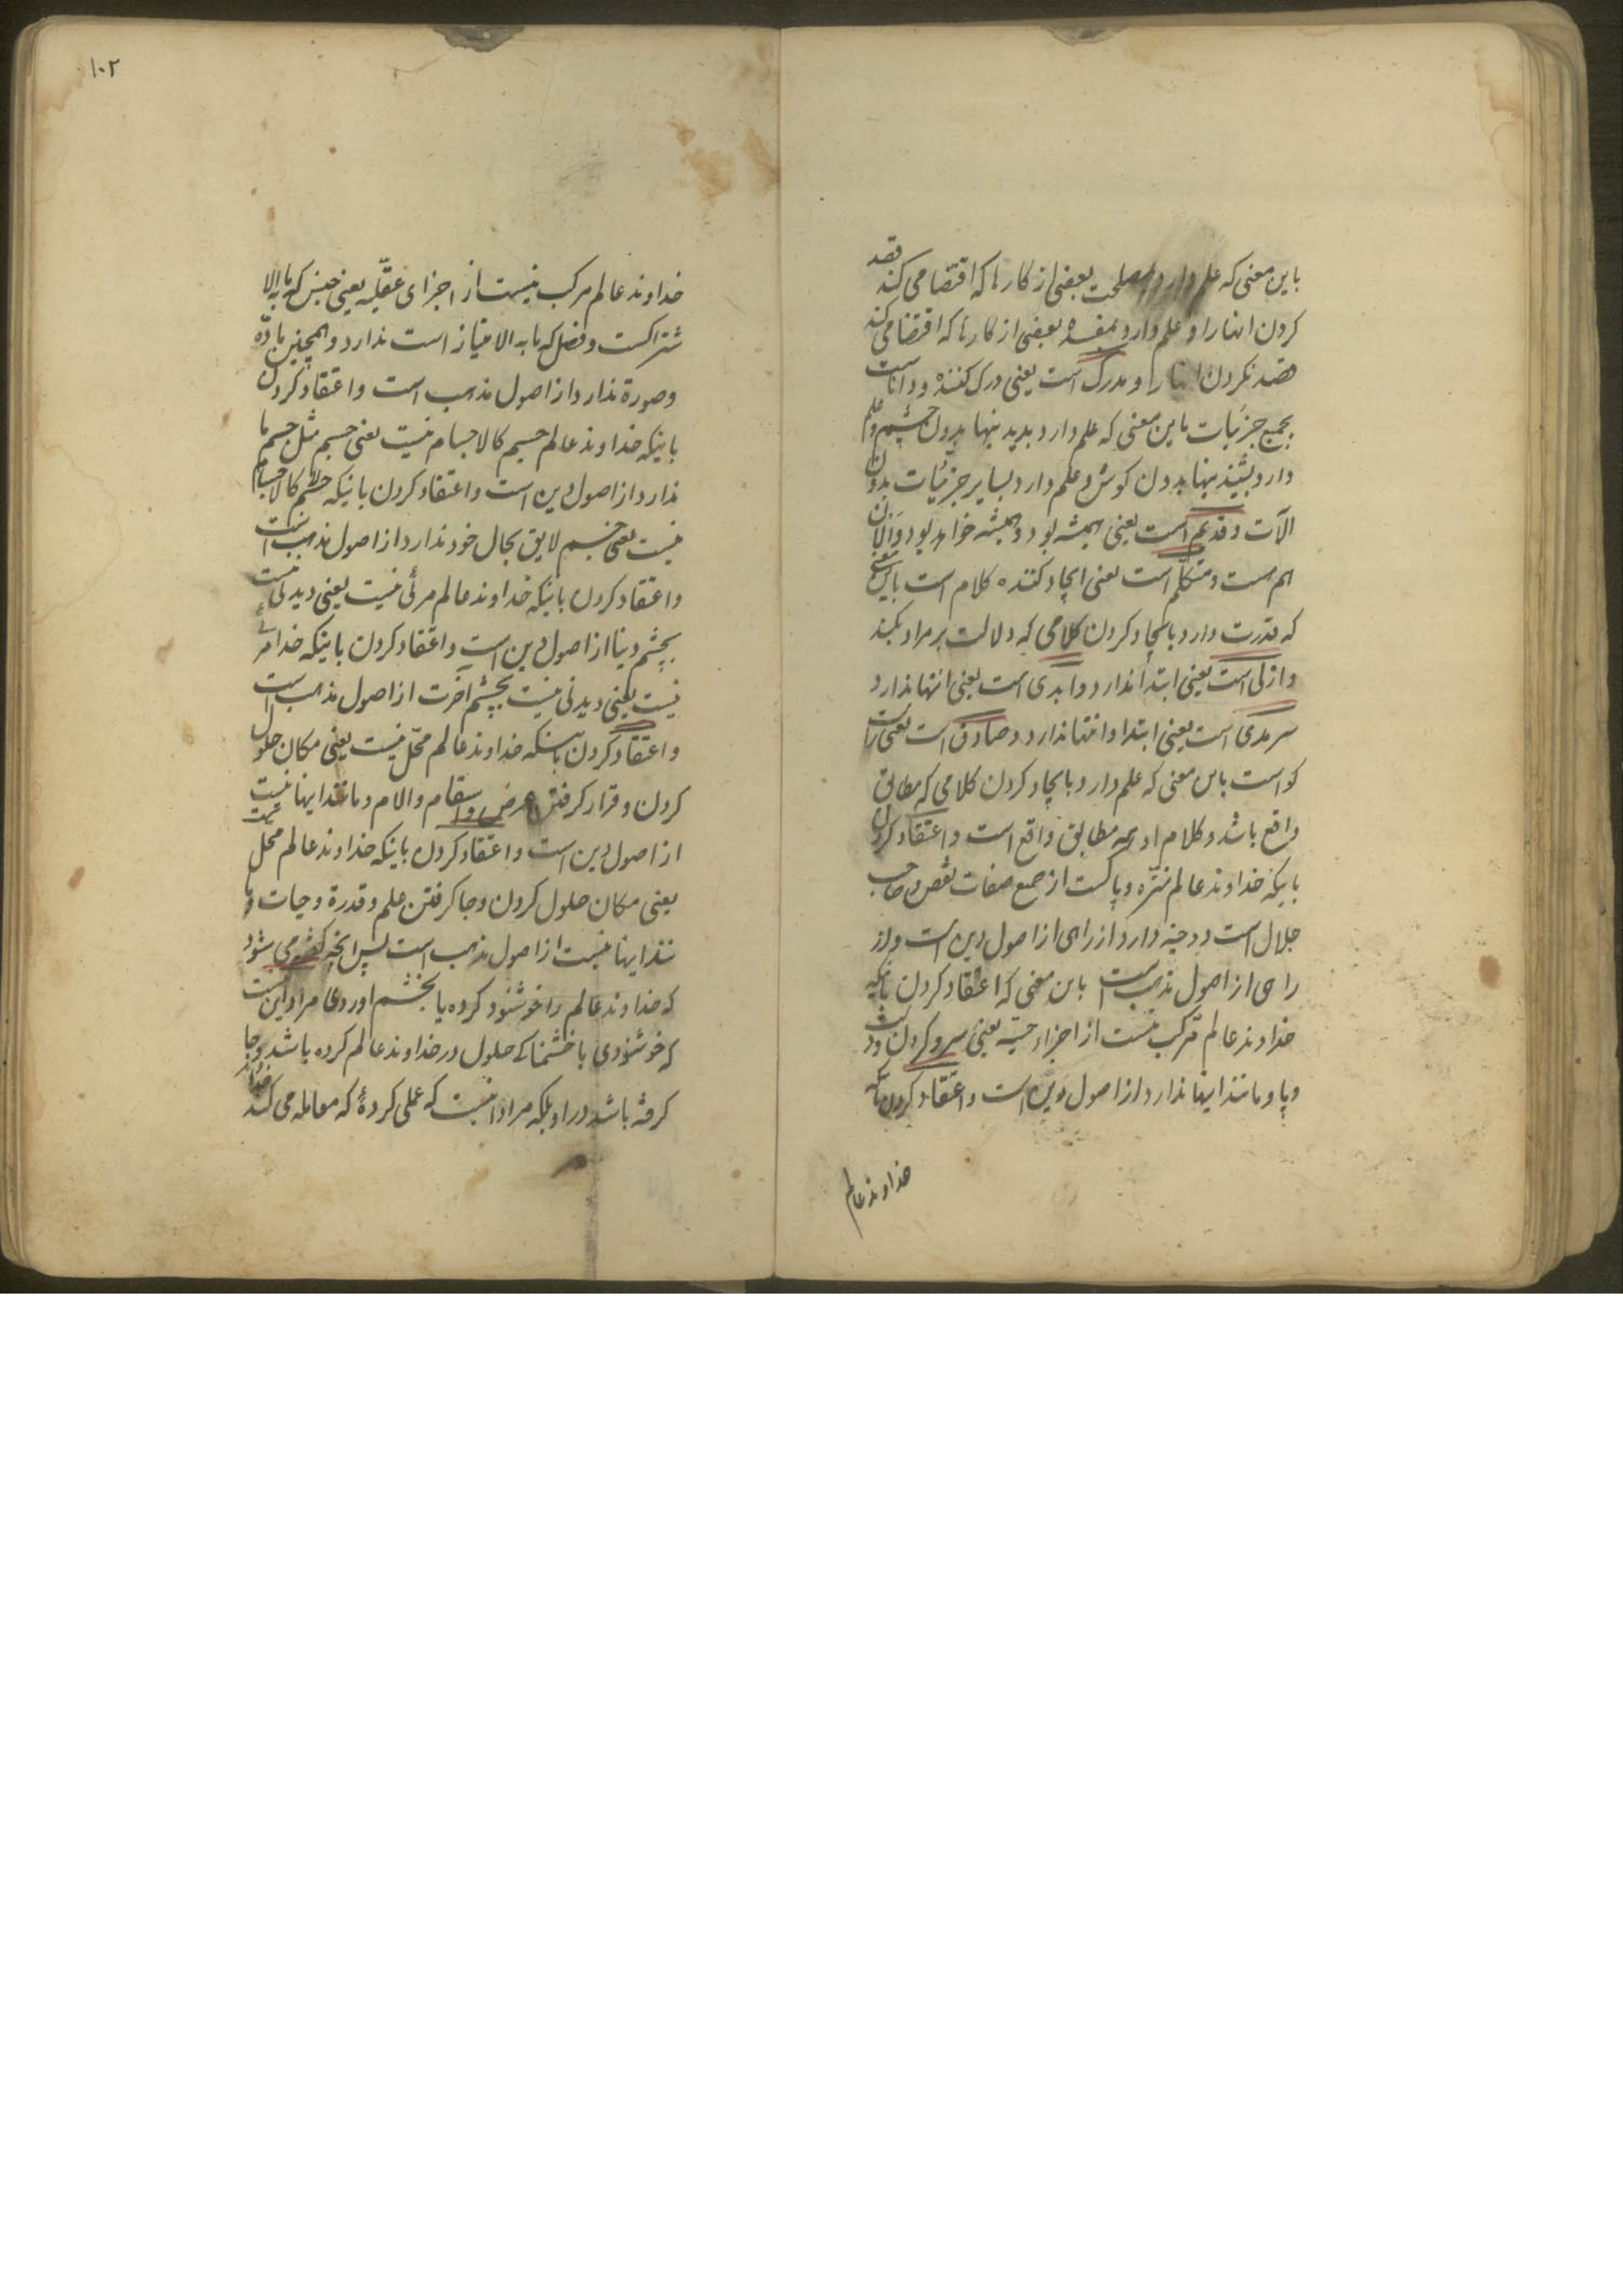 باین معنی که علم دارد بمصلحت بعضی از کارها که اقتضا می کند قصد
کردن انها را و علم دارد بمفسده بعضی از کارها که اقتضا می کند
قصد نکردن انها را و مدرک است یعنی درک کننده و دانا است
بجمیع جزئیات باین معنی که علم دارد بدیدنیها بدون چشم و علم
دارد بشنیدنیها بدون کوش و علم دارد بسایر جزئیات بدون
الآت و قدیم است یعنی همیشه بود و همیشه خواهد بود و الان
هم هست و متکلّم است یعنی ایجاد کننده کلام است باین معنی
که قدرت دارد بایجاد کردن کلامی که دلالت بر مراد بکند
و ازلی است یعنی ابتدا ندارد و ابدی است یعنی انتها ندارد
سرمدی است یعنی ابتدا و انتها ندارد و صادق است یعنی راست
کو است باین معنی که علم دارد بایجاد کردن کلامی که مطابق
واقع باشد و کلام او همه مطابق واقع است و اعتقاد کردن
باینکه خداوند عالم منزّه و پاکست از جمیع صفات نقص و صاحب
جلال است و دو جنبه دارد از راهی از اصول دین است و از
راهی از اصول مذهب است باین معنی که اعتقاد کردن باینکه
خداوند عالم مرّکب نیست از اجزاء حسیّه یعنی سر و کردن و دست
و پا و مانند اینها ندارد از اصول دین است و اعتقاد کردن باینکه
خداوند عالم
۱۰۲
خداوند عالم مرکب نیست از اجزای عقلّیه یعنی جنس که ما به الا
شتراکست و فصل که ما به الامتیاز است ندارد و همچنین مادّه
و صورة ندارد از اصول مذهب است و اعتقاد کردن
باینکه خداوند عالم جسم کالاجسام نیست یعنی جسم مثل جسم ما
ندارد از اصول دین است و اعتقاد کردن باینکه جسم لا کالاجسام
نیست یعنی جسم لایق بحال خود ندارد از اصول مذهب است
و اعتقاد کردن باینکه خداوند عالم مرئی نیست یعنی دیدنی نیست
بچشم دنیا از اصول دین است و اعتقاد کردن باینکه خدا مرئی
نیست یعنی دیدنی نیست بچشم اخرت از اصول مذهب است
و اعتقاد کردن باینکه خداوند عالم محّل نیست یعنی مکان حلول
کردن و قرار کرفتن عرض و اسقام و الام و مانند اینها نیست
از اصول دین است و اعتقاد کردن باینکه خداوند عالم محل نیست
یعنی مکان حلول کردن و جا کرفتن علم و قدرة و حیات و ما
نند اینها نیست از اصول مذهب است پس انچه کفته می شود
که خداوند عالم را خوشنود کرده یا بخشم اوردی مراد این نیست
که خوشنودی یا خشمناکی حلول در خداوند عالم کرده باشد و جا
کرفته باشد در او بلکه مراد اینست که عملی کردهٔ که معامله می کند